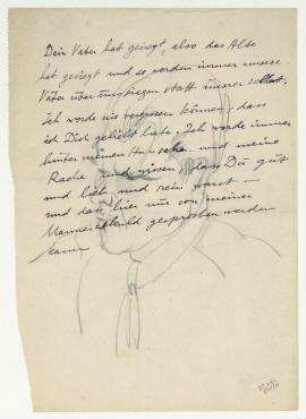 Dein Vater hat gesiegt, also das Alte
hat gesiegt und so werden immer unsere
Väter über uns siegen statt unserer selbst.
Ich werde nie vergessen können, dass
ich Dich geliebt habe. Ich werde immer
hinter meinen Hass sehen und meine
Rache und wissen, dass Du gut
und lieb und rein warst —
und dass hier nur von meiner
gesprochen werden
kann